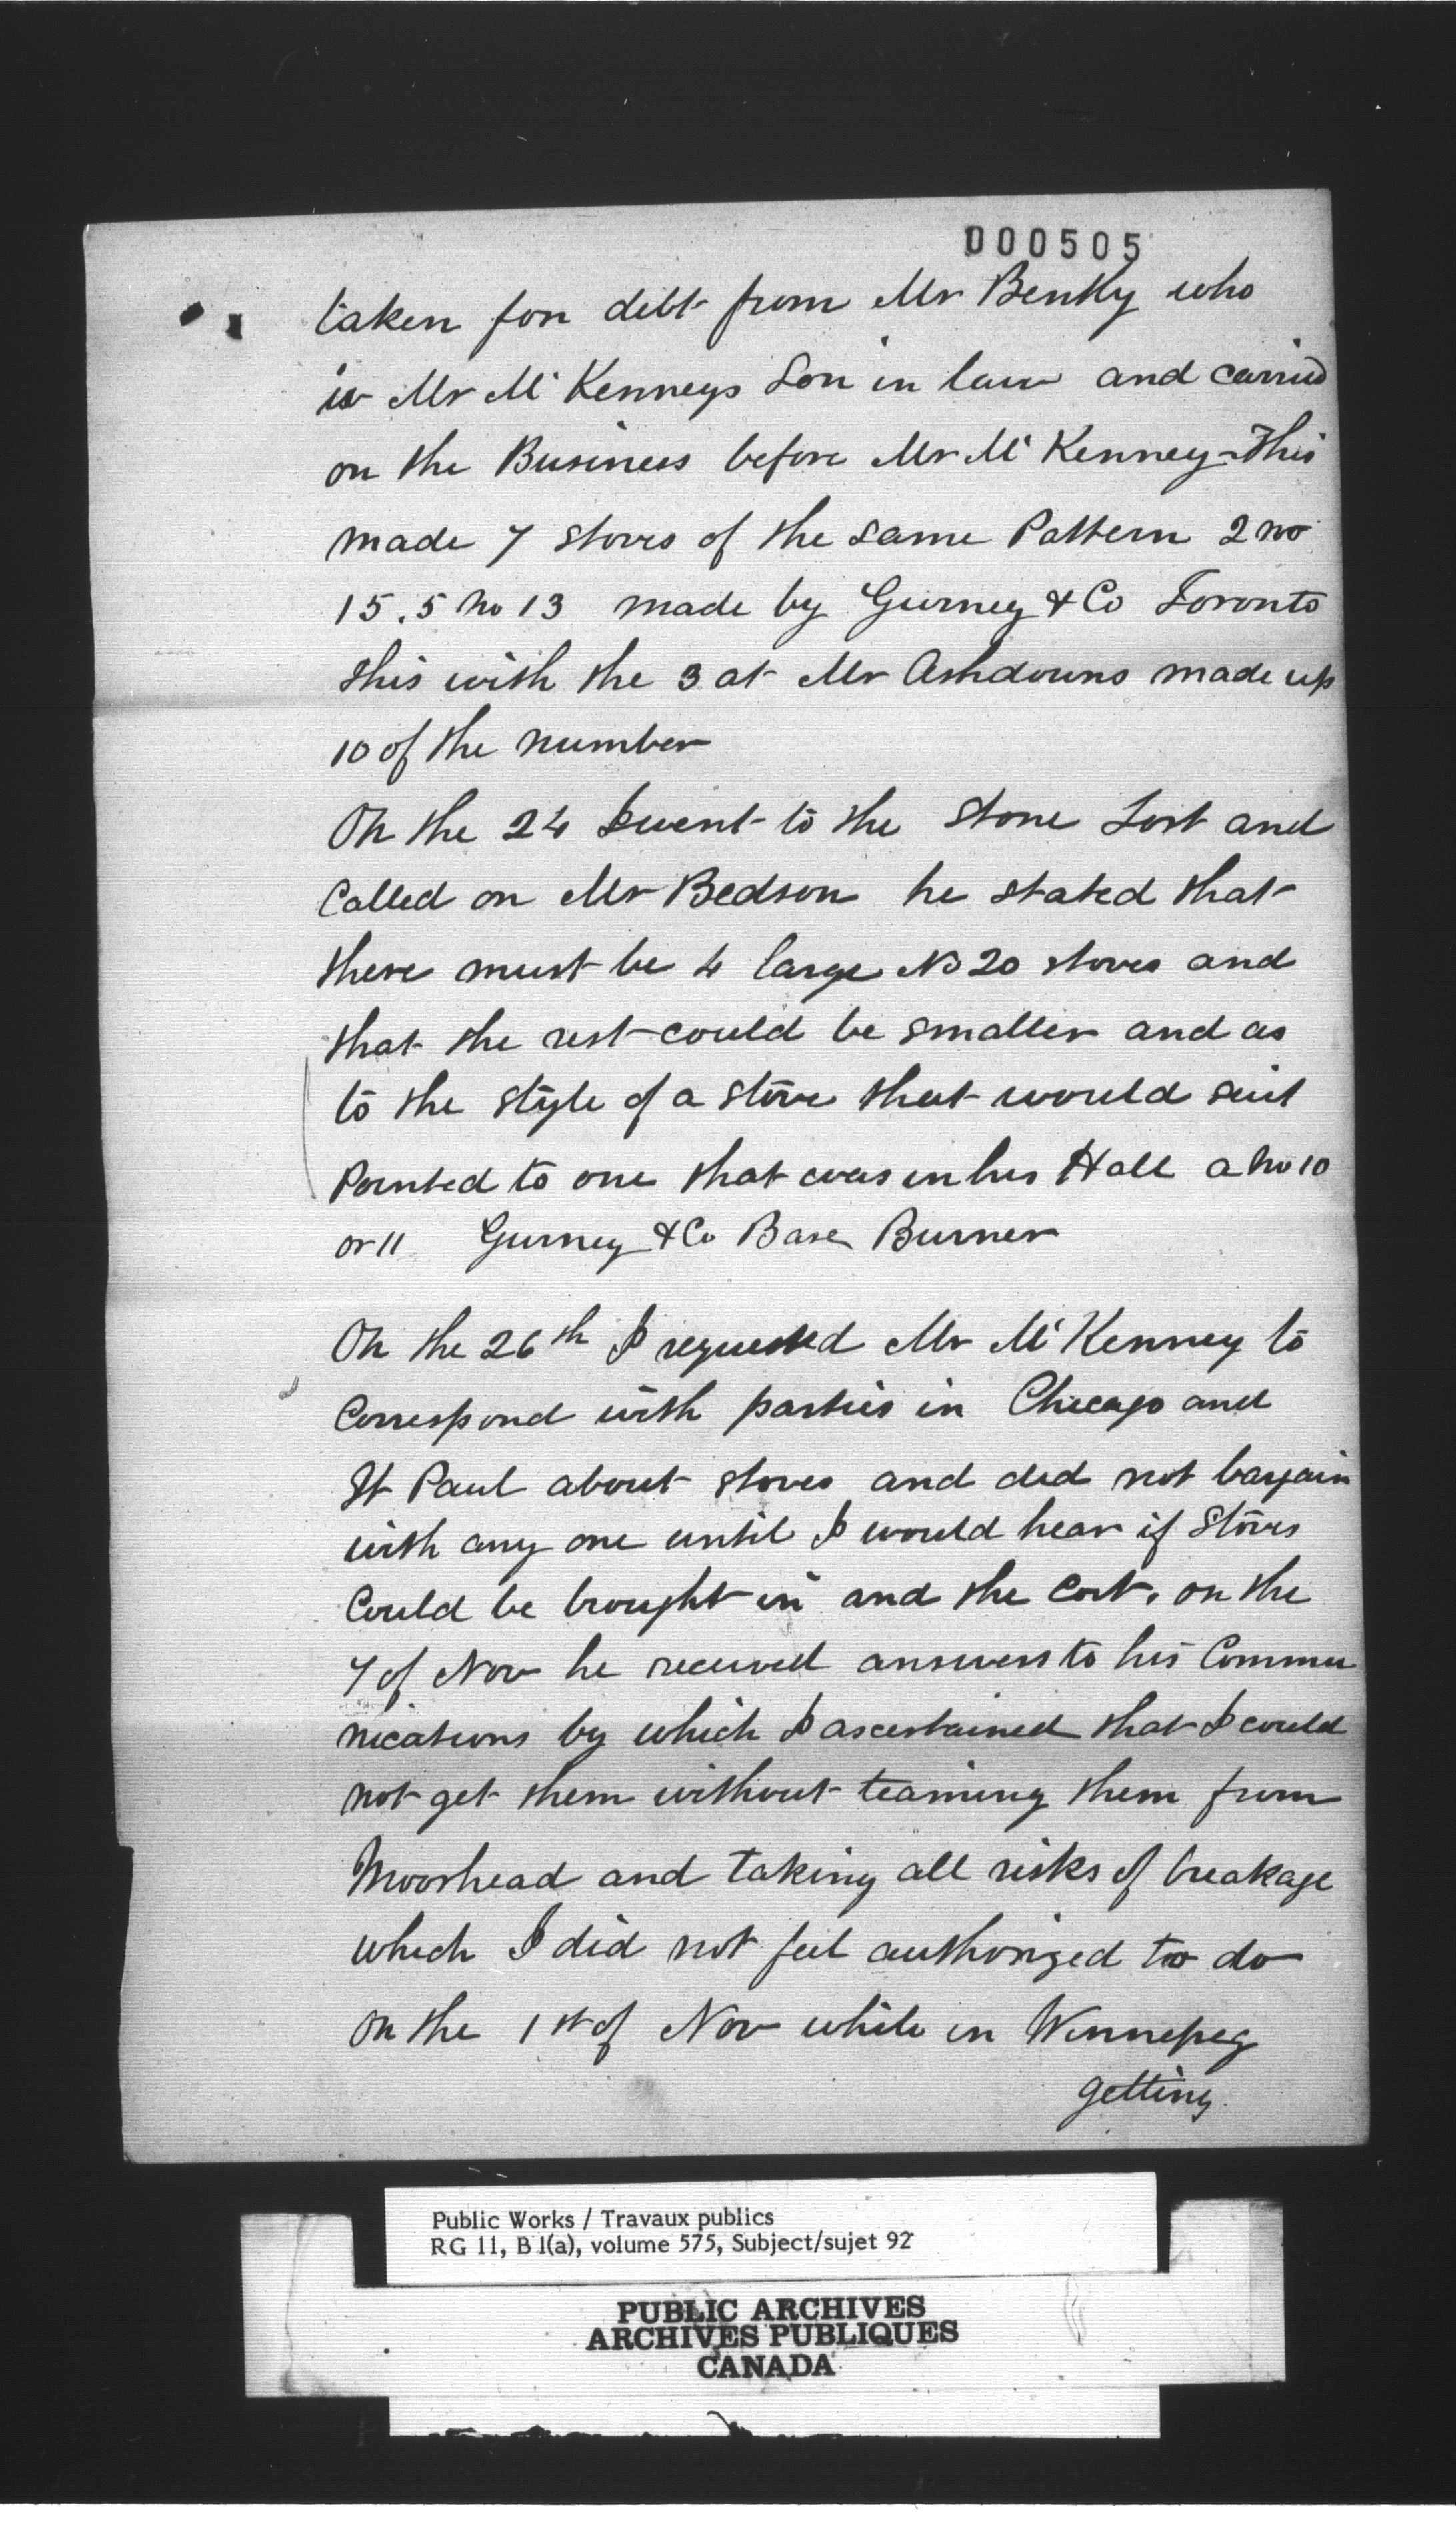 000505
taken for debt from Mr Bently who
is Mr McKenneys Son in law and carried
on the Business before Mr McKenney - This
made 7 stoves of the same Pattern 2 no
15 . 5 no 13 made by Gurney & Co Toronto
this with the 3 at Mr Ashdowns made up
10 of the number
On the 24 I went to the Stone Fort and
Called on Mr Bedson he stated that
there must be 4 large No 20 stoves and
that the rest could be smaller and as
to the style of a stove that would suit
Pointed to one that was in his Hall a no 10
or 11 Gurney & Co Base Burner
On the 26th I requested Mr McKenney to
Correspond with parties in Chicago and
St Paul about stoves and did not bargain
with any one until I would hear if Stoves
Could be brought in and the Cost. on the
7 of Nov he received answers to his Commu
nications by which I ascertained that I could
not get them without teaming them from
Moorhead and taking all risks of breakage
which I did not feel authorized to do
on the 1st of Nov while in Winnepeg
getting
Public Works / Travaux publics
RG 11, B 1(a), volume 575, Subject/sujet 92
PUBLIC ARCHIVES
ARCHIVES PUBLIQUES
CANADA